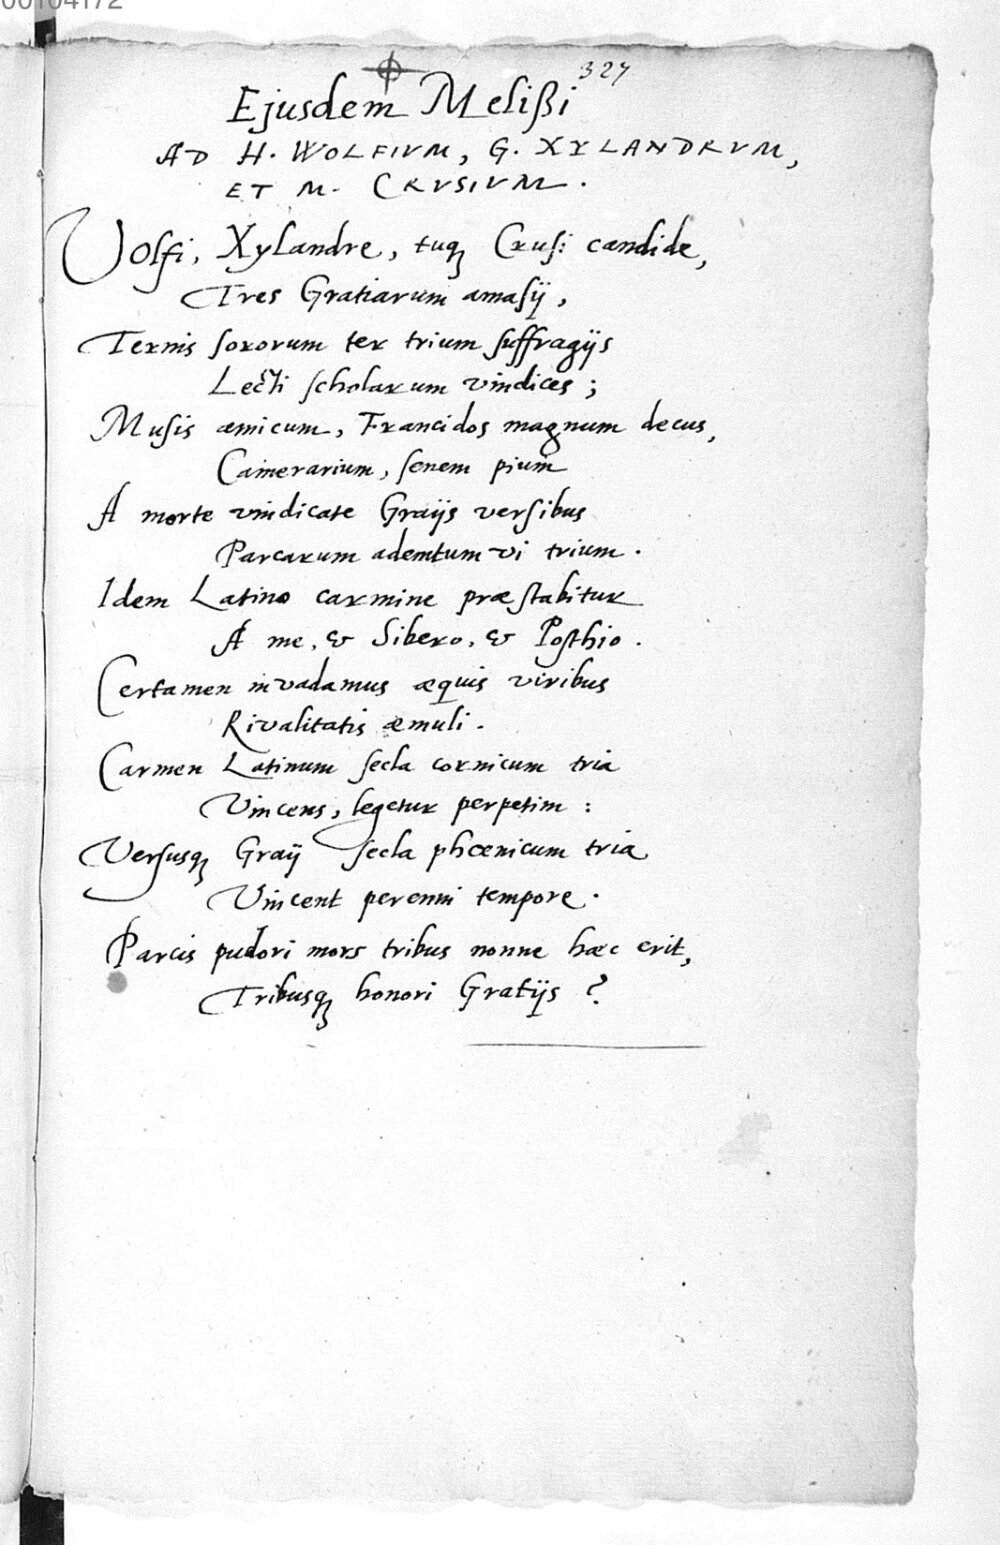 327
Ejusdem Melißi
AD H. WOLFIVM, G. XYLANDRVM,
ET M. CRVSIVM.
Volfi, Xylandre, tuq; Crusi candide,
Tres Gratiarum amasij,
Ternis sororum ter trium suffragijs
Lecti scholarum vindices;
Musis amicum, Francidos magnum decus,
Camerarium, senem pium
A morte vindicate Graijs versibus
Parcarum ademtum vi trium.
Idem Latino carmine præstabitur
A me, & Sibero, & Posthio.
Certamen invadamus æquis viribus
Rivalitatis æmuli.
Carmen Latinum secla cornicum tria
Vincens, legetur perpetim:
Versusq; Graij secla phœnicum tria
Vincent perenni tempore.
Parcis pudori mors tribus nonne hæc erit,
Tribusq; honori Gratijs?